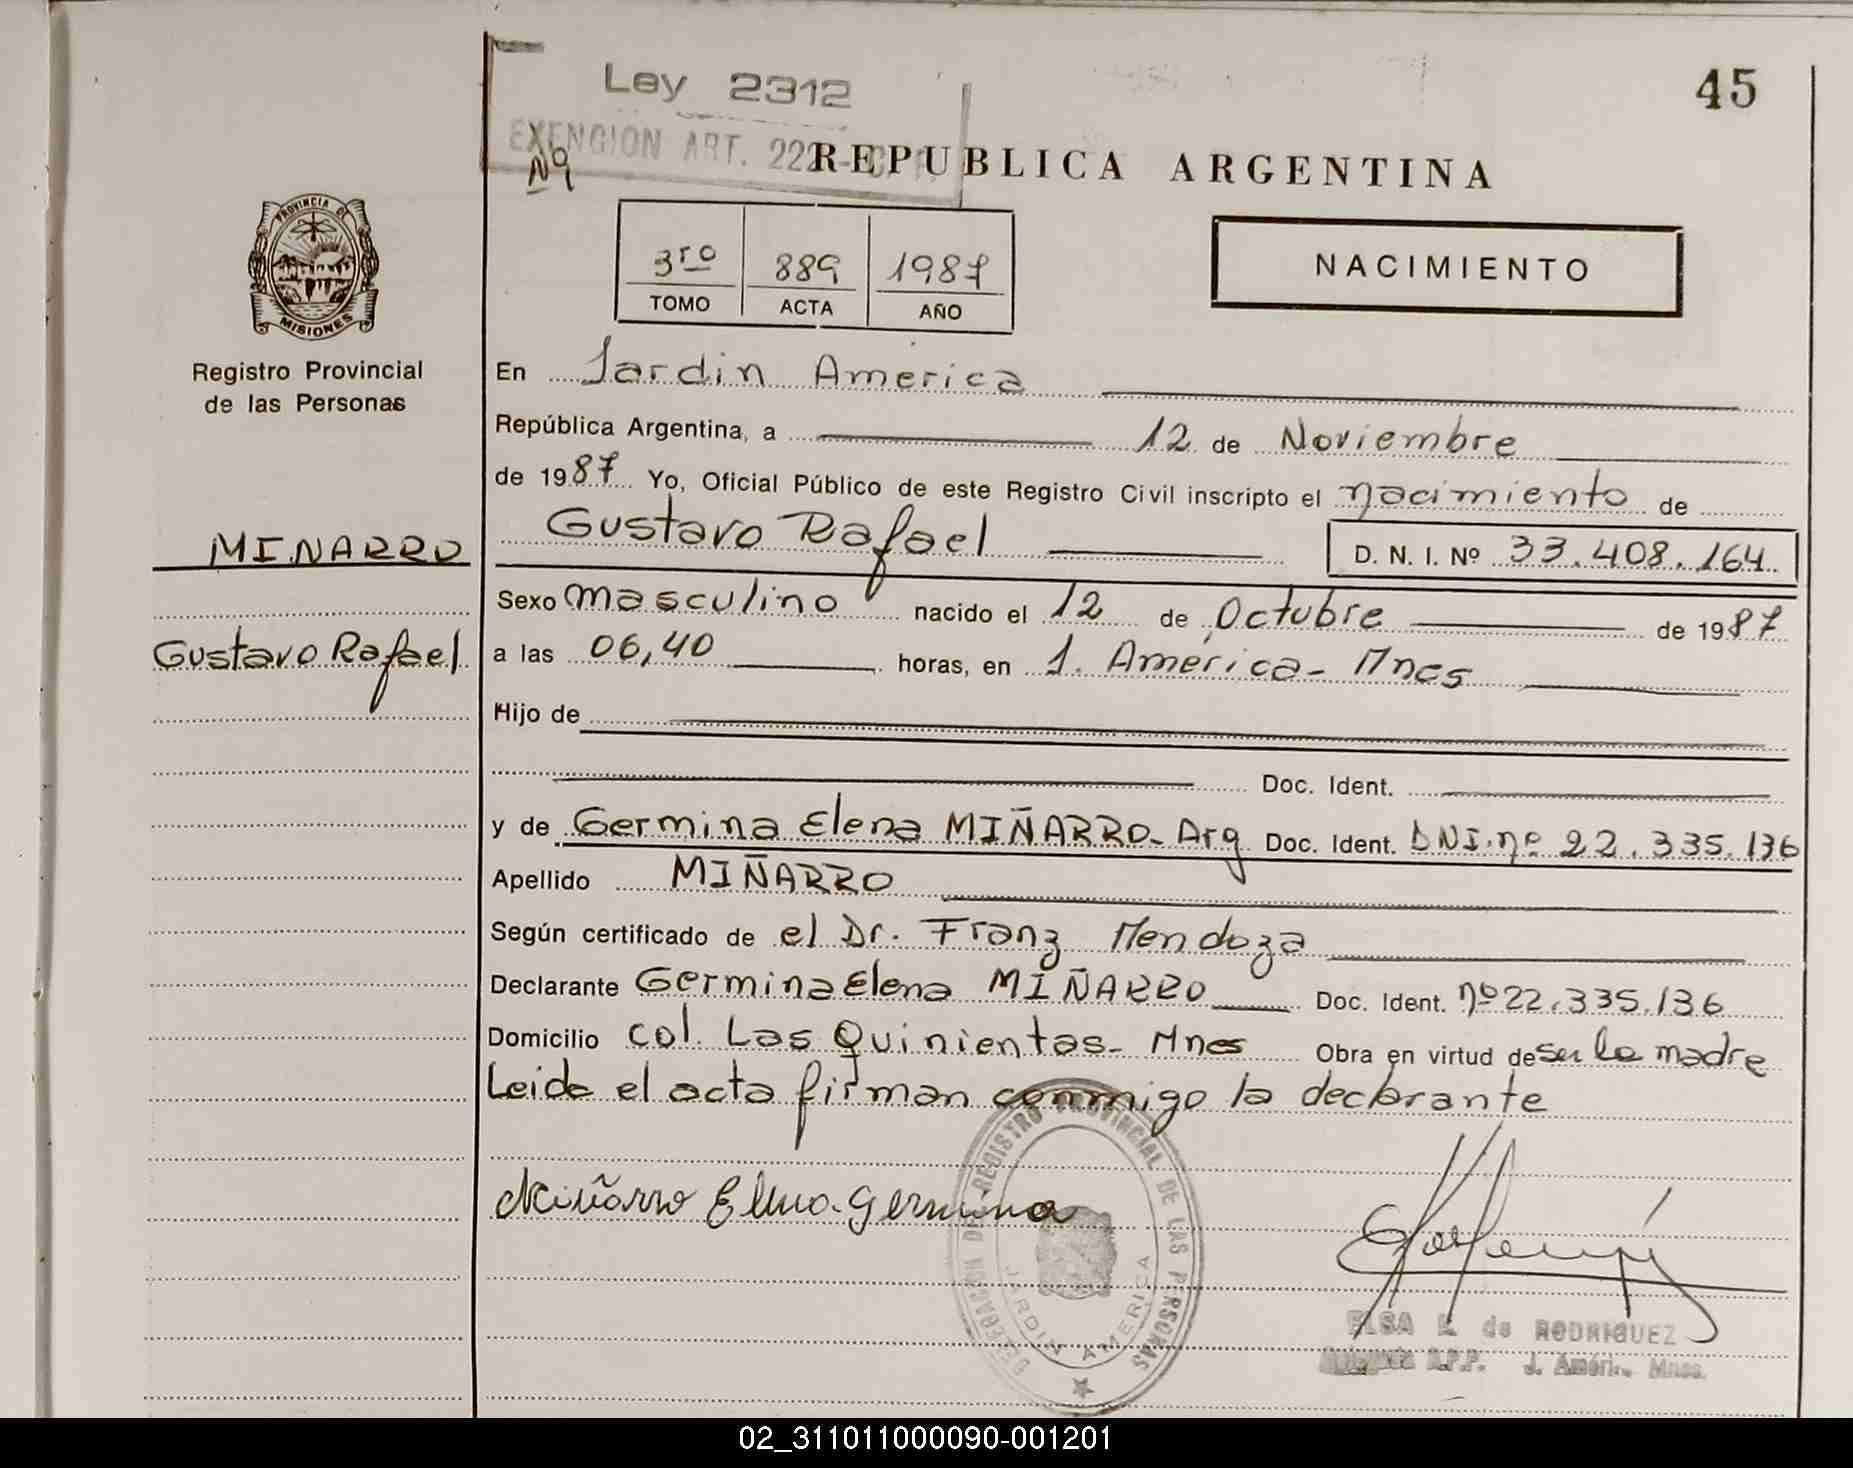 45
Ley 2312
EXENCION ART. 222
Nº
REPUBLICA ARGENTINA
PROVINCIA DE
MISIONES
Registro Provincial
de las Personas
3ro 889 1987
TOMO ACTA AÑO
NACIMIENTO
En Jardin America
República Argentina, a 12 de Noviembre
de 1987 Yo, Oficial Público de este Registro Civil inscripto el nacimiento de
MINARRO
Gustavo Rafael D. N. I. Nº 33.408.164
Sexo masculino nacido el 12 de Octubre de 1987
Gustavo Rafael
a las 06,40 horas, en J. América- Mnes
Hijo de
Doc. Ident.
y de Germina Elena MIÑARRO- Arg Doc. Ident. DNI.nº 22.335.136
Apellido MIÑARRO
Según certificado de el Dr. Franz Mendoza
Declarante Germina Elena MIÑARRO Doc. Ident. nº 22.335.136
Domicilio col. Las Quinientas- Mnes Obra en virtud de ser la madre
Leida el acta firman conmigo la declarante
Miñarro Elena Germina
DELEGACION DEL REGISTRO PROVINCIAL DE LAS PERSONAS
JARDIN AMERICA
ELSA E. de RODRIGUEZ
R.P.P. J. Amér. Mnes.
02_311011000090-001201